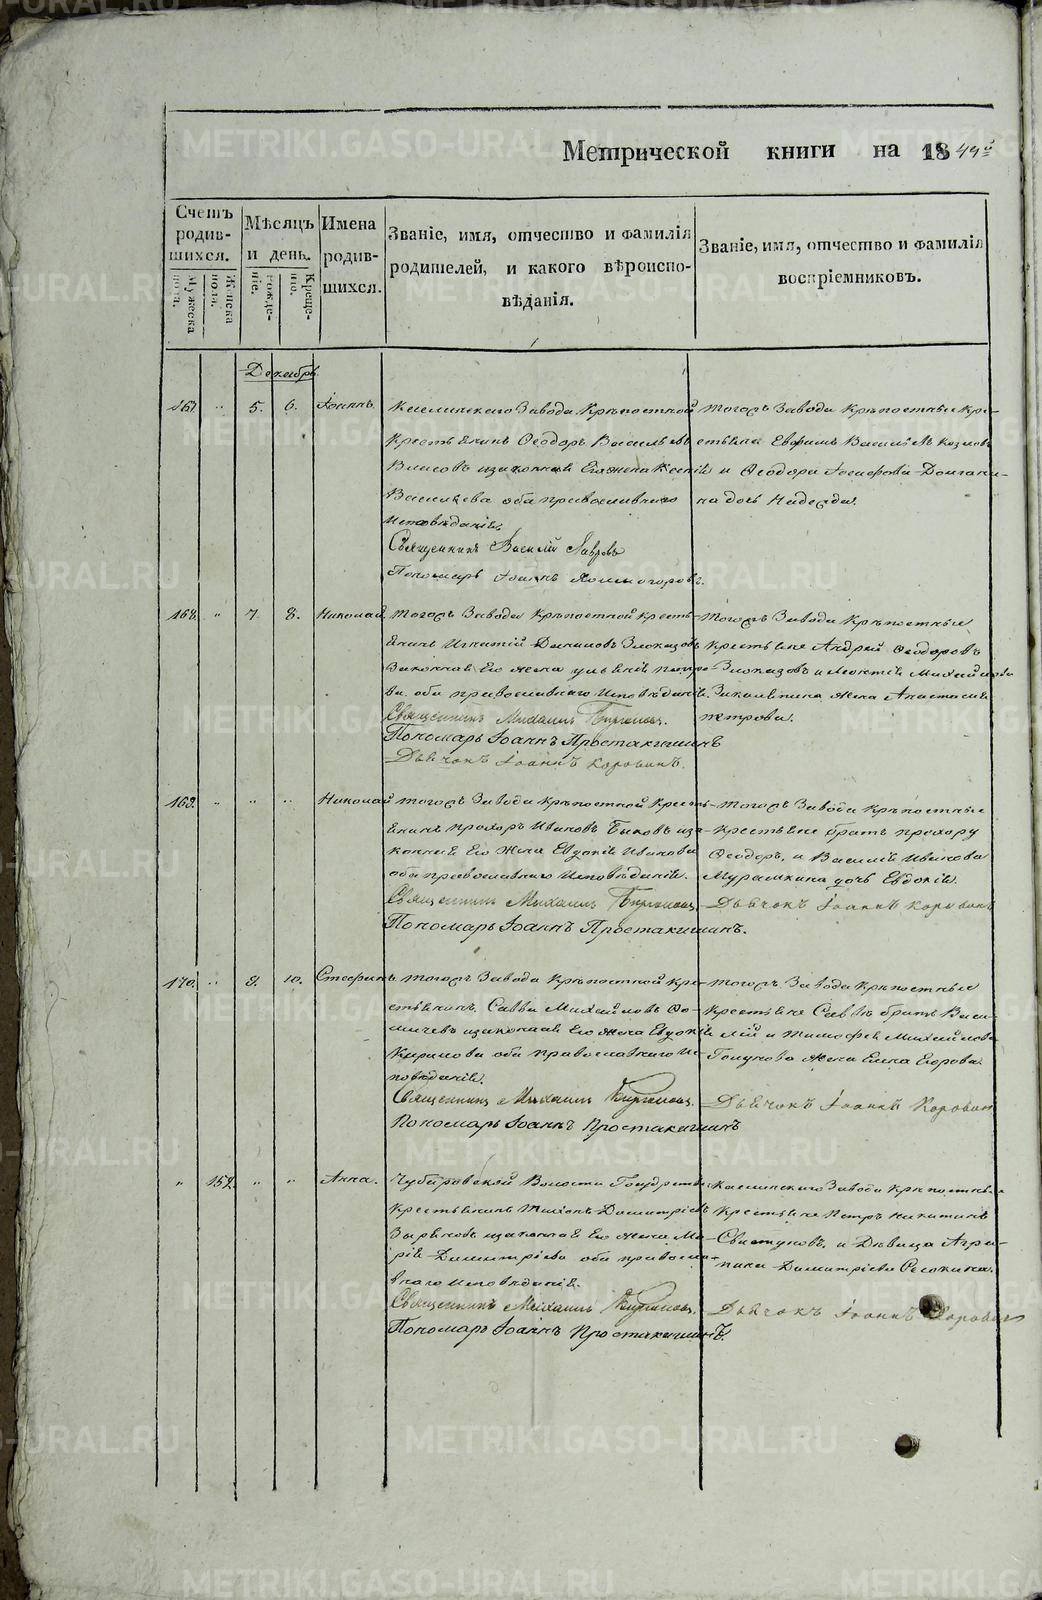 Метрической книги на 1849й
Счетъ родившихся.
Мѣсяцъ и день.
Имена родившихся.
Званіе, имя, отчество и фамилія родителей, и какого вѣроисповѣданія.
Званіе, имя, отчество и фамилія воспріемниковъ.
Мужеска пола.
Женска пола.
рожденіе.
Крещеніе.
Декабрь
167. " 5. 6. Іоаннъ.
Каслинскаго Завода Крѣпостной
Крестьянинъ Ѳеодоръ Васильевъ
Власовъ изаконная Его жена
Васильева оба православнаго
Исповѣданія.
Священникъ Василій Лавровъ
Пономарь Іоаннъ Холмогоровъ.
Тогожъ Завода Крѣпостные Кре-
стьяне Евфимъ Васильевъ Козловъ
и Ѳеодора Іосифова
дочь Надежда.
168. " 7. 8. Николай.
Тогожъ Завода Крѣпостной Кресть-
янинъ Игнатій Даниловъ Злоказовъ
Законная Его жена Ульянія Петро-
ва оба православнаго Исповѣданія.
Священникъ Михаилъ
Пономарь Іоаннъ Простакишинъ
Дьячокъ Іоаннъ Коровинъ.
Тогожъ Завода Крѣпостные
Крестьяне Андрей Ѳеодоровъ
Злоказовъ и Михайлова
жена Анастасія
петрова.
169. " " " Николай
Тогожъ Завода Крѣпостной Кресть-
янинъ Прохоръ Ивановъ Быковъ иза-
конная Его Жена Евдокія Иванова
оба Православнаго Исповѣданія.
Священникъ Михаилъ
Пономарь Іоаннъ Простакишинъ.
Тогожъ Завода Крѣпостные
Крестьяне братъ Прохору
Ѳеодоръ, и Василія Иванова
Мурашкина дочь Евдокія.
Дьячокъ Іоаннъ Коровинъ
170. " 9. 10. Стефанъ
Тогожъ Завода Крѣпостной Кре-
стьянинъ Савва Михайловъ Ѳо-
мичевъ изаконная Его Жена Евдокія
Кирилова оба Православнаго Ис-
повѣданія.
Священникъ Михаилъ
Пономарь Іоаннъ Простакишинъ
Тогожъ Завода Крѣпостные
Крестьяне Саввѣ братъ Васи-
лій и Тимофея Михайлова
Голунова Жена Елена Егорова.
Дьячокъ Іоаннъ Коровин
" 152. " " Анна.
Волости Государств
Крестьянинъ Тихонъ Димитріевъ
Зыряновъ изаконная Его Жена Ма-
рія Димитріева оба православ-
внаго Исповѣданія.
Священникъ Михаилъ
Пономарь Іоаннъ Простакишинъ.
Каслинскаго Завода Крѣпостные
Крестьяне Петръ Никитинъ
Свистуновъ, и Дѣвица Агри-
пина Димитріева
Дьячокъ Іоаннъ Коровин
METRIKI.GASO-URAL.RU